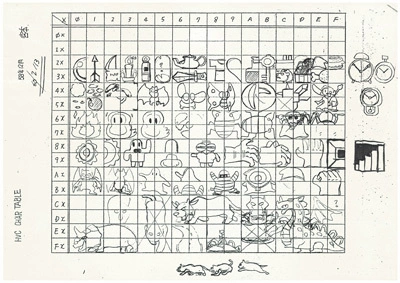 X 0 1 2 3 4 5 6 7 8 9 A B C D E F
0X
1X
2X
3X
4X
5X
6X
7X
8X
9X
AX
BX
CX
DX
EX
FX
HVC CHAR TABLE